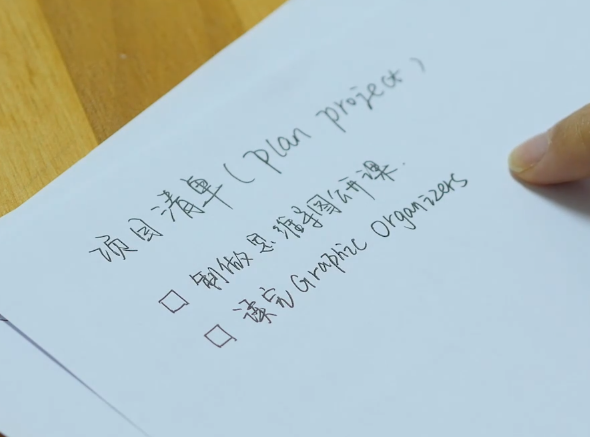 项目清单(plan project)
制做思维导图研课.
读完Graphic Organizers